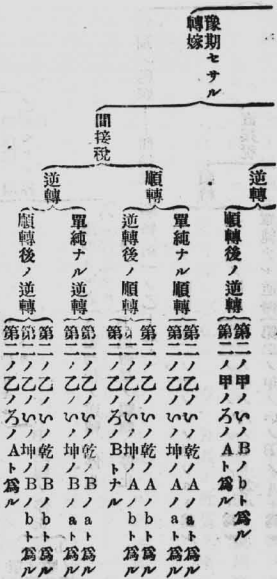 豫期セサル
轉嫁
逆轉
順轉後ノ逆轉
第二ノ甲ノいノBノbト爲ル
第二ノ甲ノろノAト爲ル
間接税
順轉
單純ナル順轉
第二ノ乙ノいノ乾ノAノaト爲ル
第二ノ乙ノいノ坤ノAノaト爲ル
逆轉後ノ順轉
第二ノ乙ノいノ乾ノAノbト爲ル
第二ノ乙ノいノ坤ノAノbト爲ル
第二ノ乙ノろノBトナル
逆轉
單純ナル逆轉
第二ノ乙ノいノ乾ノBノaト爲ル
第二ノ乙ノいノ坤ノBノaト爲ル
順轉後ノ逆轉
第二ノ乙ノいノ乾ノBノbト爲ル
第二ノ乙ノいノ坤ノBノbト爲ル
第二ノ乙ノろノAト爲ル